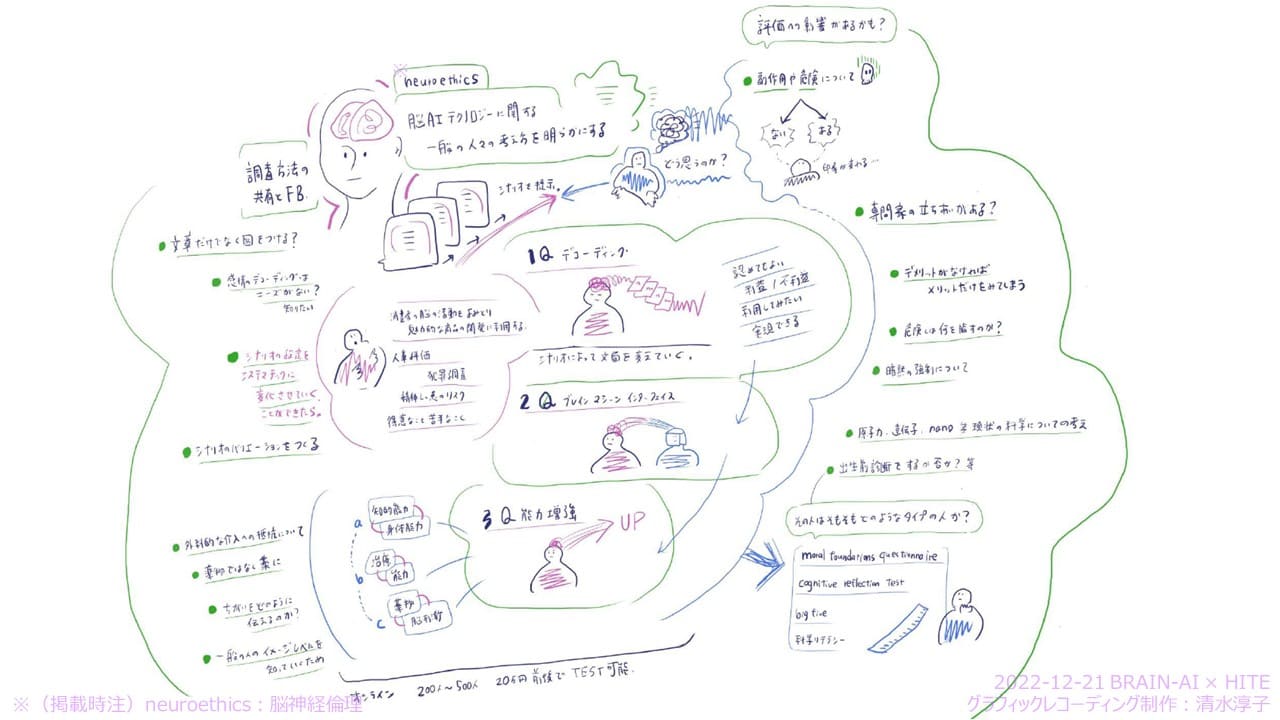 評価への影響があるかも?
副作用や危険について
ない
ある
印象が変わる…
※
neuroethics
脳AIテクノロジーに関する
一般の人々の考え方を明らかにする
調査方法の
共有とFB.
シナリオを提示。
どう思うのか?
専門家の立ち位置がある?
デメリットがなければ
メリットだけをみてしまう
危険とは何を指すのか?
暗黙の強制について
原子力、遺伝子、nano 等 現状の科学についての考え
出生前診断をするか否か? 等
文章だけでなく図をつける?
感情のデコーディングは
ニーズがない?
知りたい
シナリオの設定を
システマチックに
変化させていく
ことができたら。
シナリオのバリエーションをつくる
1Q デコーディング
認めてもよい
有益/不利益
利用してみたい
実現できる
シナリオによって文面を変えていく。
消費者の脳の活動をよみとり
魅力的な商品の開発に利用する.
人事評価
犯罪調査
精神しっ患のリスク
得意なこと苦手なこと
2Q ブレイン マシーン インターフェイス
3Q 能力増強
UP
a
知的能力
身体能力
b
治療
能力
c
薬物
脳刺激
外科的な介入への抵抗について
薬物ではなく薬に
ちがいをどのように
伝えるのか?
一般の人のイメージレベルを
知っていくため
オンライン 200人〜500人 20万円前後でTEST可能.
その人はそもそもどのようなタイプの人か?
moral foundations questionnaire
cognitive reflection test
big five
科学リテラシー
※（掲載時注）neuroethics：脳神経倫理
2022-12-21 BRAIN-AI × HITE
グラフィックレコーディング制作：清水淳子